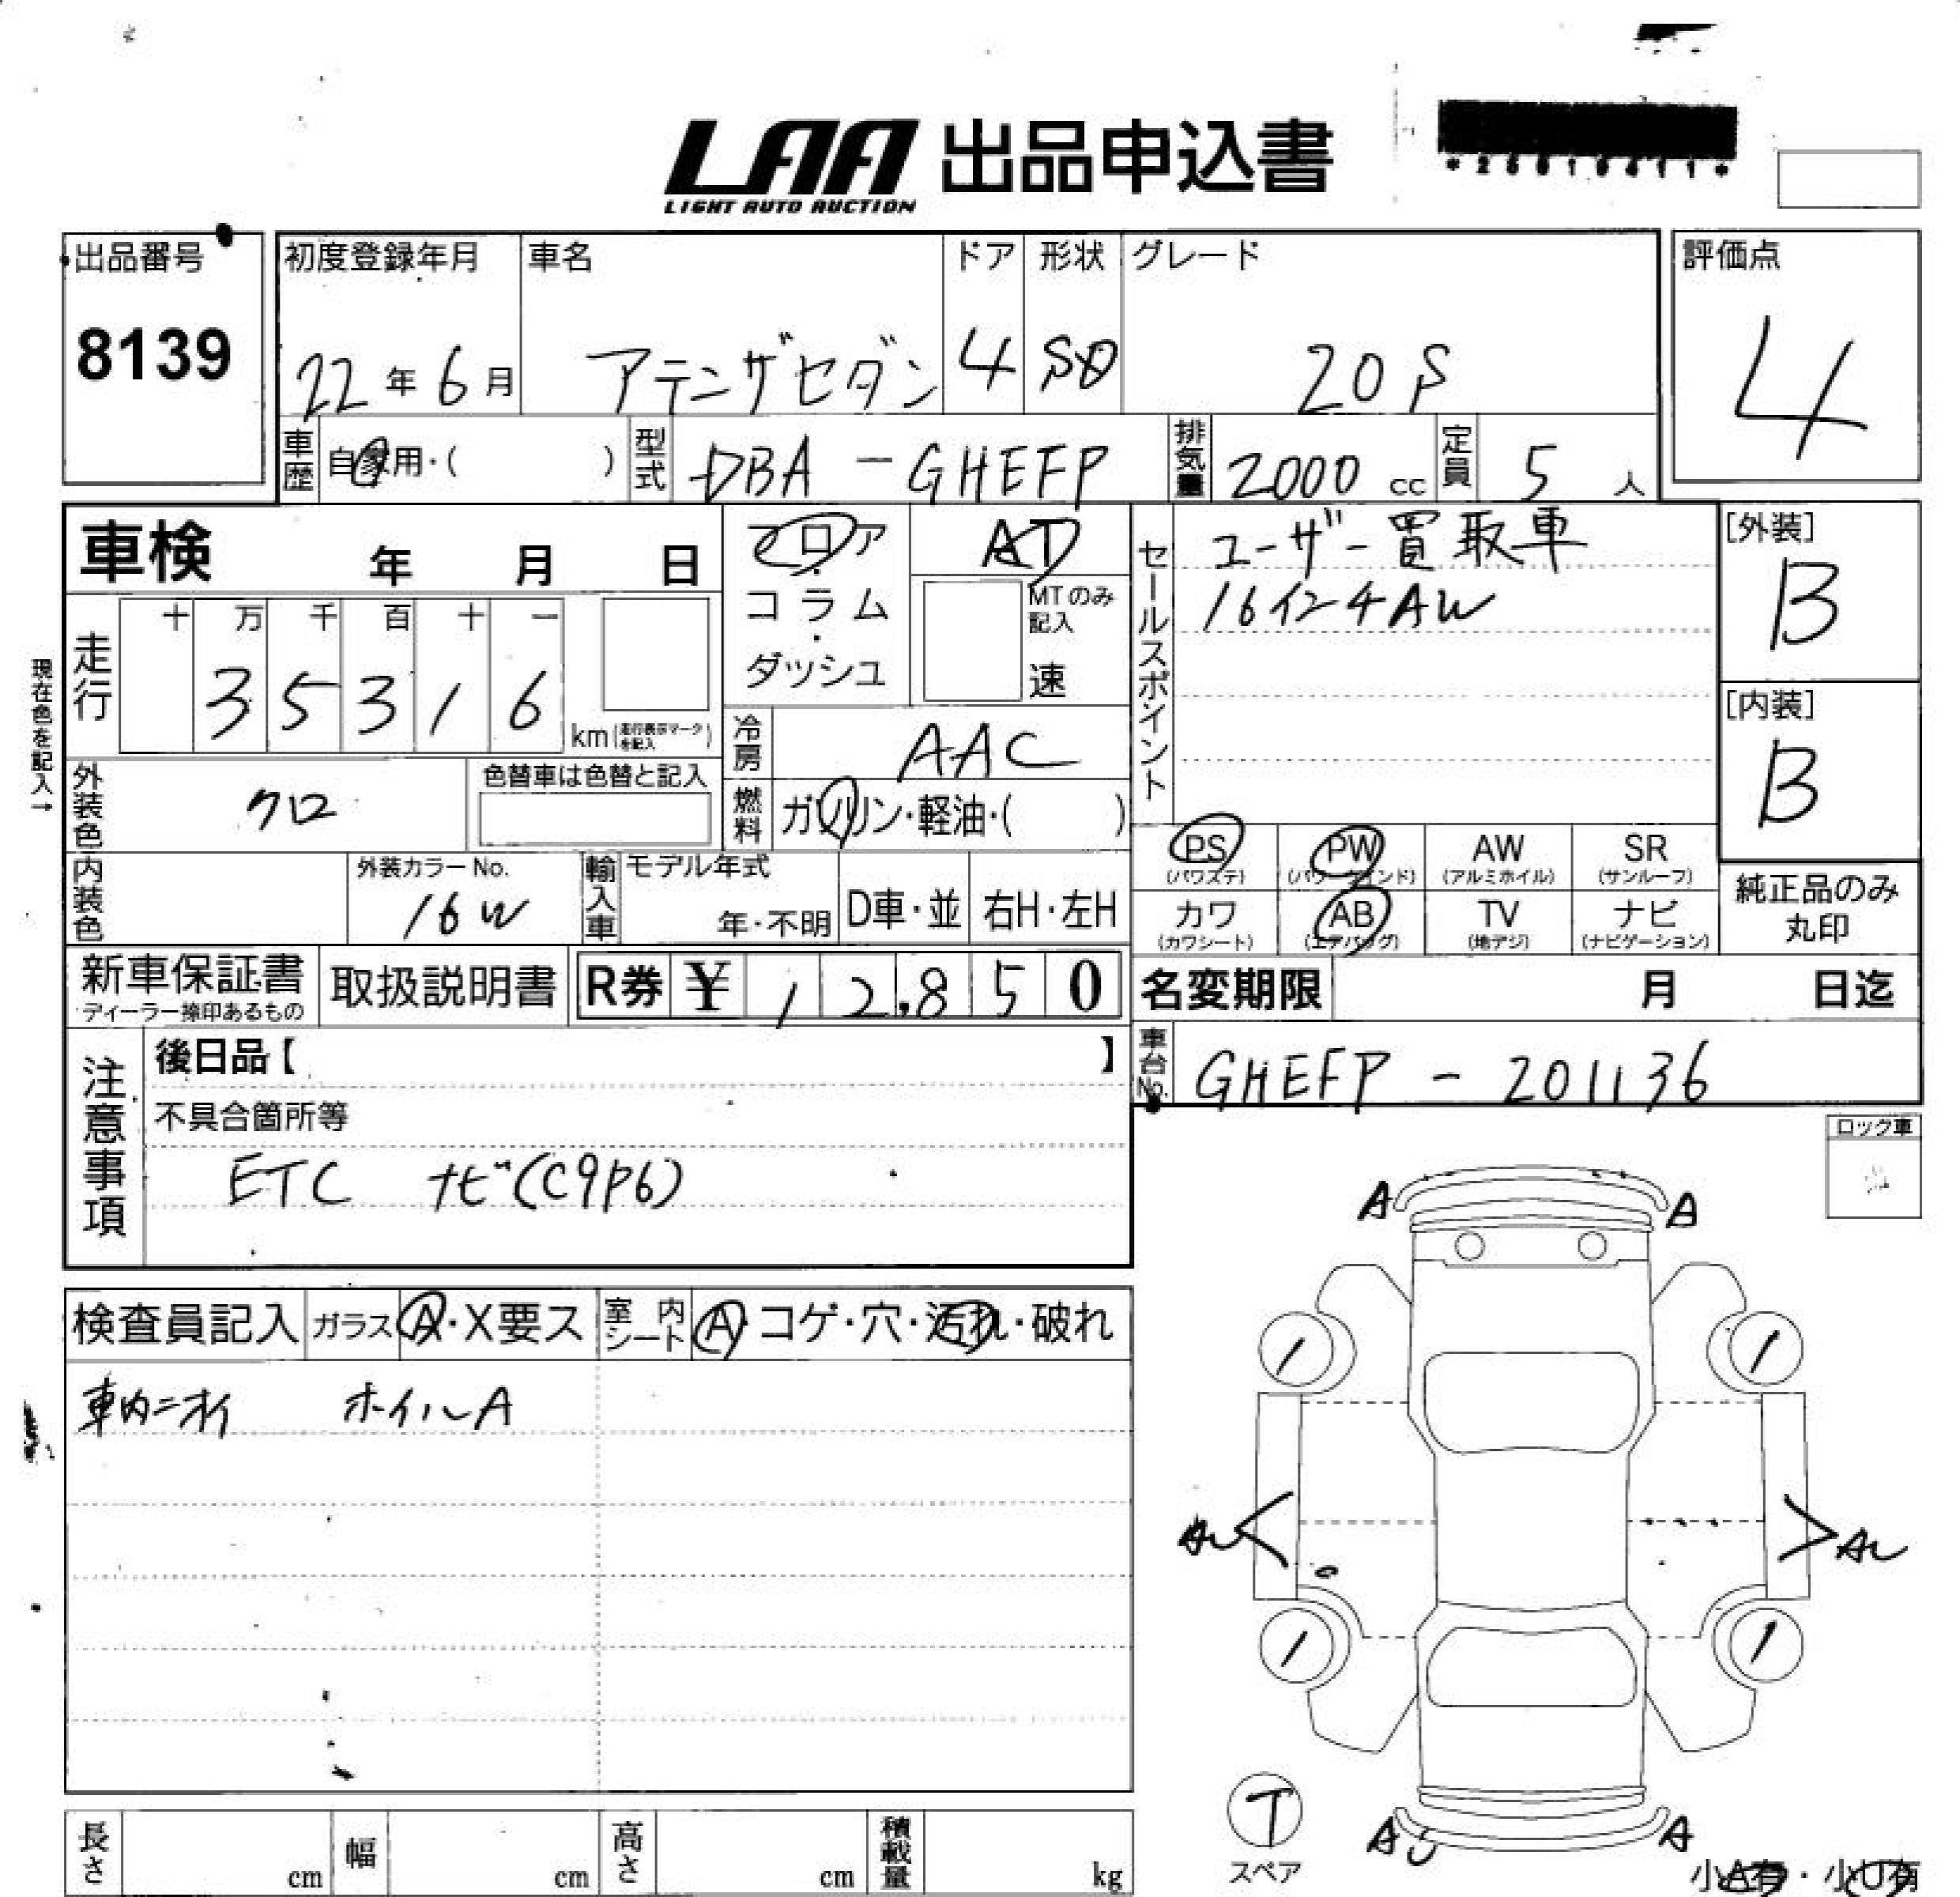 LAA 出品申込書
LIGHT AUTO AUCTION
出品番号
8139
初度登録年月
22年6月
車名
アテンザセダン
ドア
4
形状
SD
グレード
20S
評価点
4
車歴 自家用・( )
型式 DBA-GHEFP
排気量 2000 cc
定員 5 人
車検 年 月 日
フロア・コラム・ダッシュ
AT
MTのみ記入
速
セールスポイント
ユーザー買取車
16インチAW
[外装]
B
[内装]
B
現在色を記入→
走行
十 万 千 百 十 一
3 5 3 1 6
km(走行表示マークを記入)
冷房 AAC
外装色 クロ
色替車は色替と記入
燃料 ガソリン・軽油・( )
PS (パワステ)
PW (パワーウインド)
AW (アルミホイル)
SR (サンルーフ)
内装色
外装カラーNo.
16W
輸入車
モデル年式
年・不明
D車・並
右H・左H
カワ (カワシート)
AB (エアバッグ)
TV (地デジ)
ナビ (ナビゲーション)
純正品のみ丸印
新車保証書
ディーラー捺印あるもの
取扱説明書
R券 ¥ 12,850
名変期限 月 日迄
車台No. GHEFP-201136
注意事項
後日品【 】
不具合箇所等
ETC ナビ(C9P6)
ロック車
A A
検査員記入
ガラス A・X要ス
室内シート A・コゲ・穴・汚れ・破れ
車内ニオイ ホイルA
T
スペア
A A
小A有・小U有
長さ cm
幅 cm
高さ cm
積載量 kg